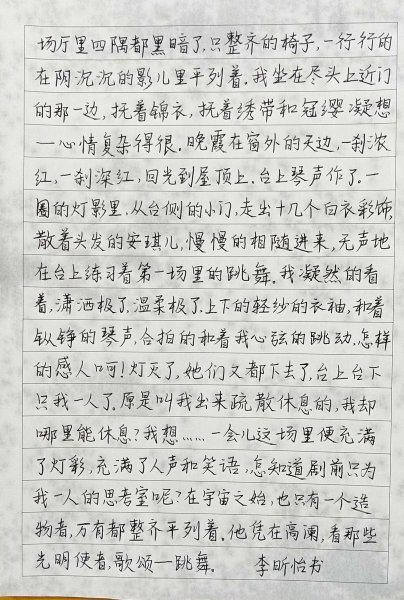 场厅里四隅都黑暗了,只整齐的椅子,一行行的
在阴沉沉的影儿里平列着.我坐在尽头上近门
的那一边,抚着锦衣,抚着绣带和冠缨凝想
一心情复杂得很.晚霞在窗外的天边,一刹浓
红,一刹深红,回光到屋顶上.台上琴声作了.一
圈的灯影里,从台侧的小门,走出十几个白衣彩饰,
散着头发的安琪儿,慢慢的相随进来,无声地
在台上练习着第一场里的跳舞.我凝然的看
着,潇洒极了,温柔极了,上下的轻纱的衣袖,和着
钑铮的琴声,合拍的和着我心弦的跳动,怎样
的感人呵!灯灭了,她们又都下去了,台上台下
只我一人了.原是叫我出来疏散休息的,我却
哪里能休息?我想……一会儿这场里便充满
了灯彩,充满了人声和笑语,怎知道剧前只为
我一人的思考室呢?在宇宙之始,也只有一个造
物者,万有都整齐平列着.他凭在高阑,看那些
光明使者,歌颂一跳舞. 李昕怡书